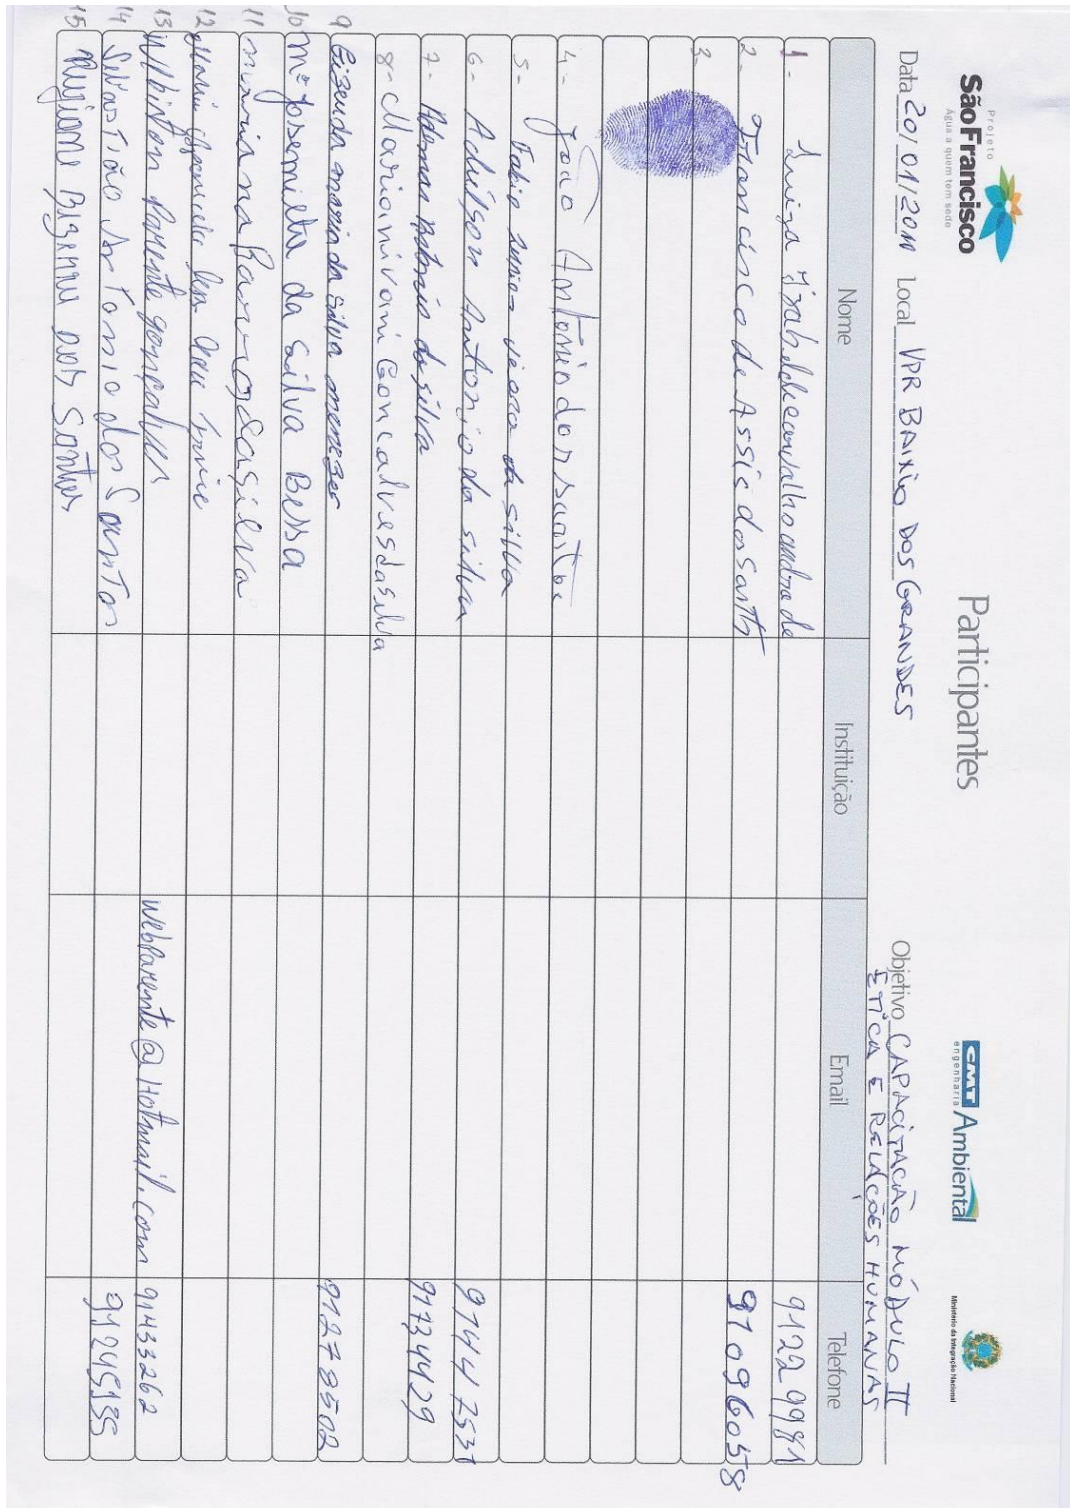 Projeto
São Francisco
Água a quem tem sede
Participantes
CMT Ambiental
engenharia
Ministério da Integração Nacional
Data 20/01/2011 Local VPR BAIXIO DOS GRANDES Objetivo CAPACITAÇÃO MÓDULO II
ETICA E RELAÇÕES HUMANAS
Nome Instituição Email Telefone
1- Luiza Izabel de carvalho andrade 9122 9991
2- Francisco de Assis dos Santos 91096058
3-
4- João Antonio dos
5- Fabio Junior da silva
6- Aduilson Antonio da silva 9144 7531
7- da silva 91734429
8- Maria nivani Goncalves da silva
9 maria da silva menezes 91278502
10 Mª Josenilda da Silva Bessa
11 mariana Barros da silva
12 Maria
13 Wlbiston Parente gonçalves webparente@Hotmail.com 91433262
14 Sebastião Antonio dos Santos 91245135
15 Regiane dos Santos